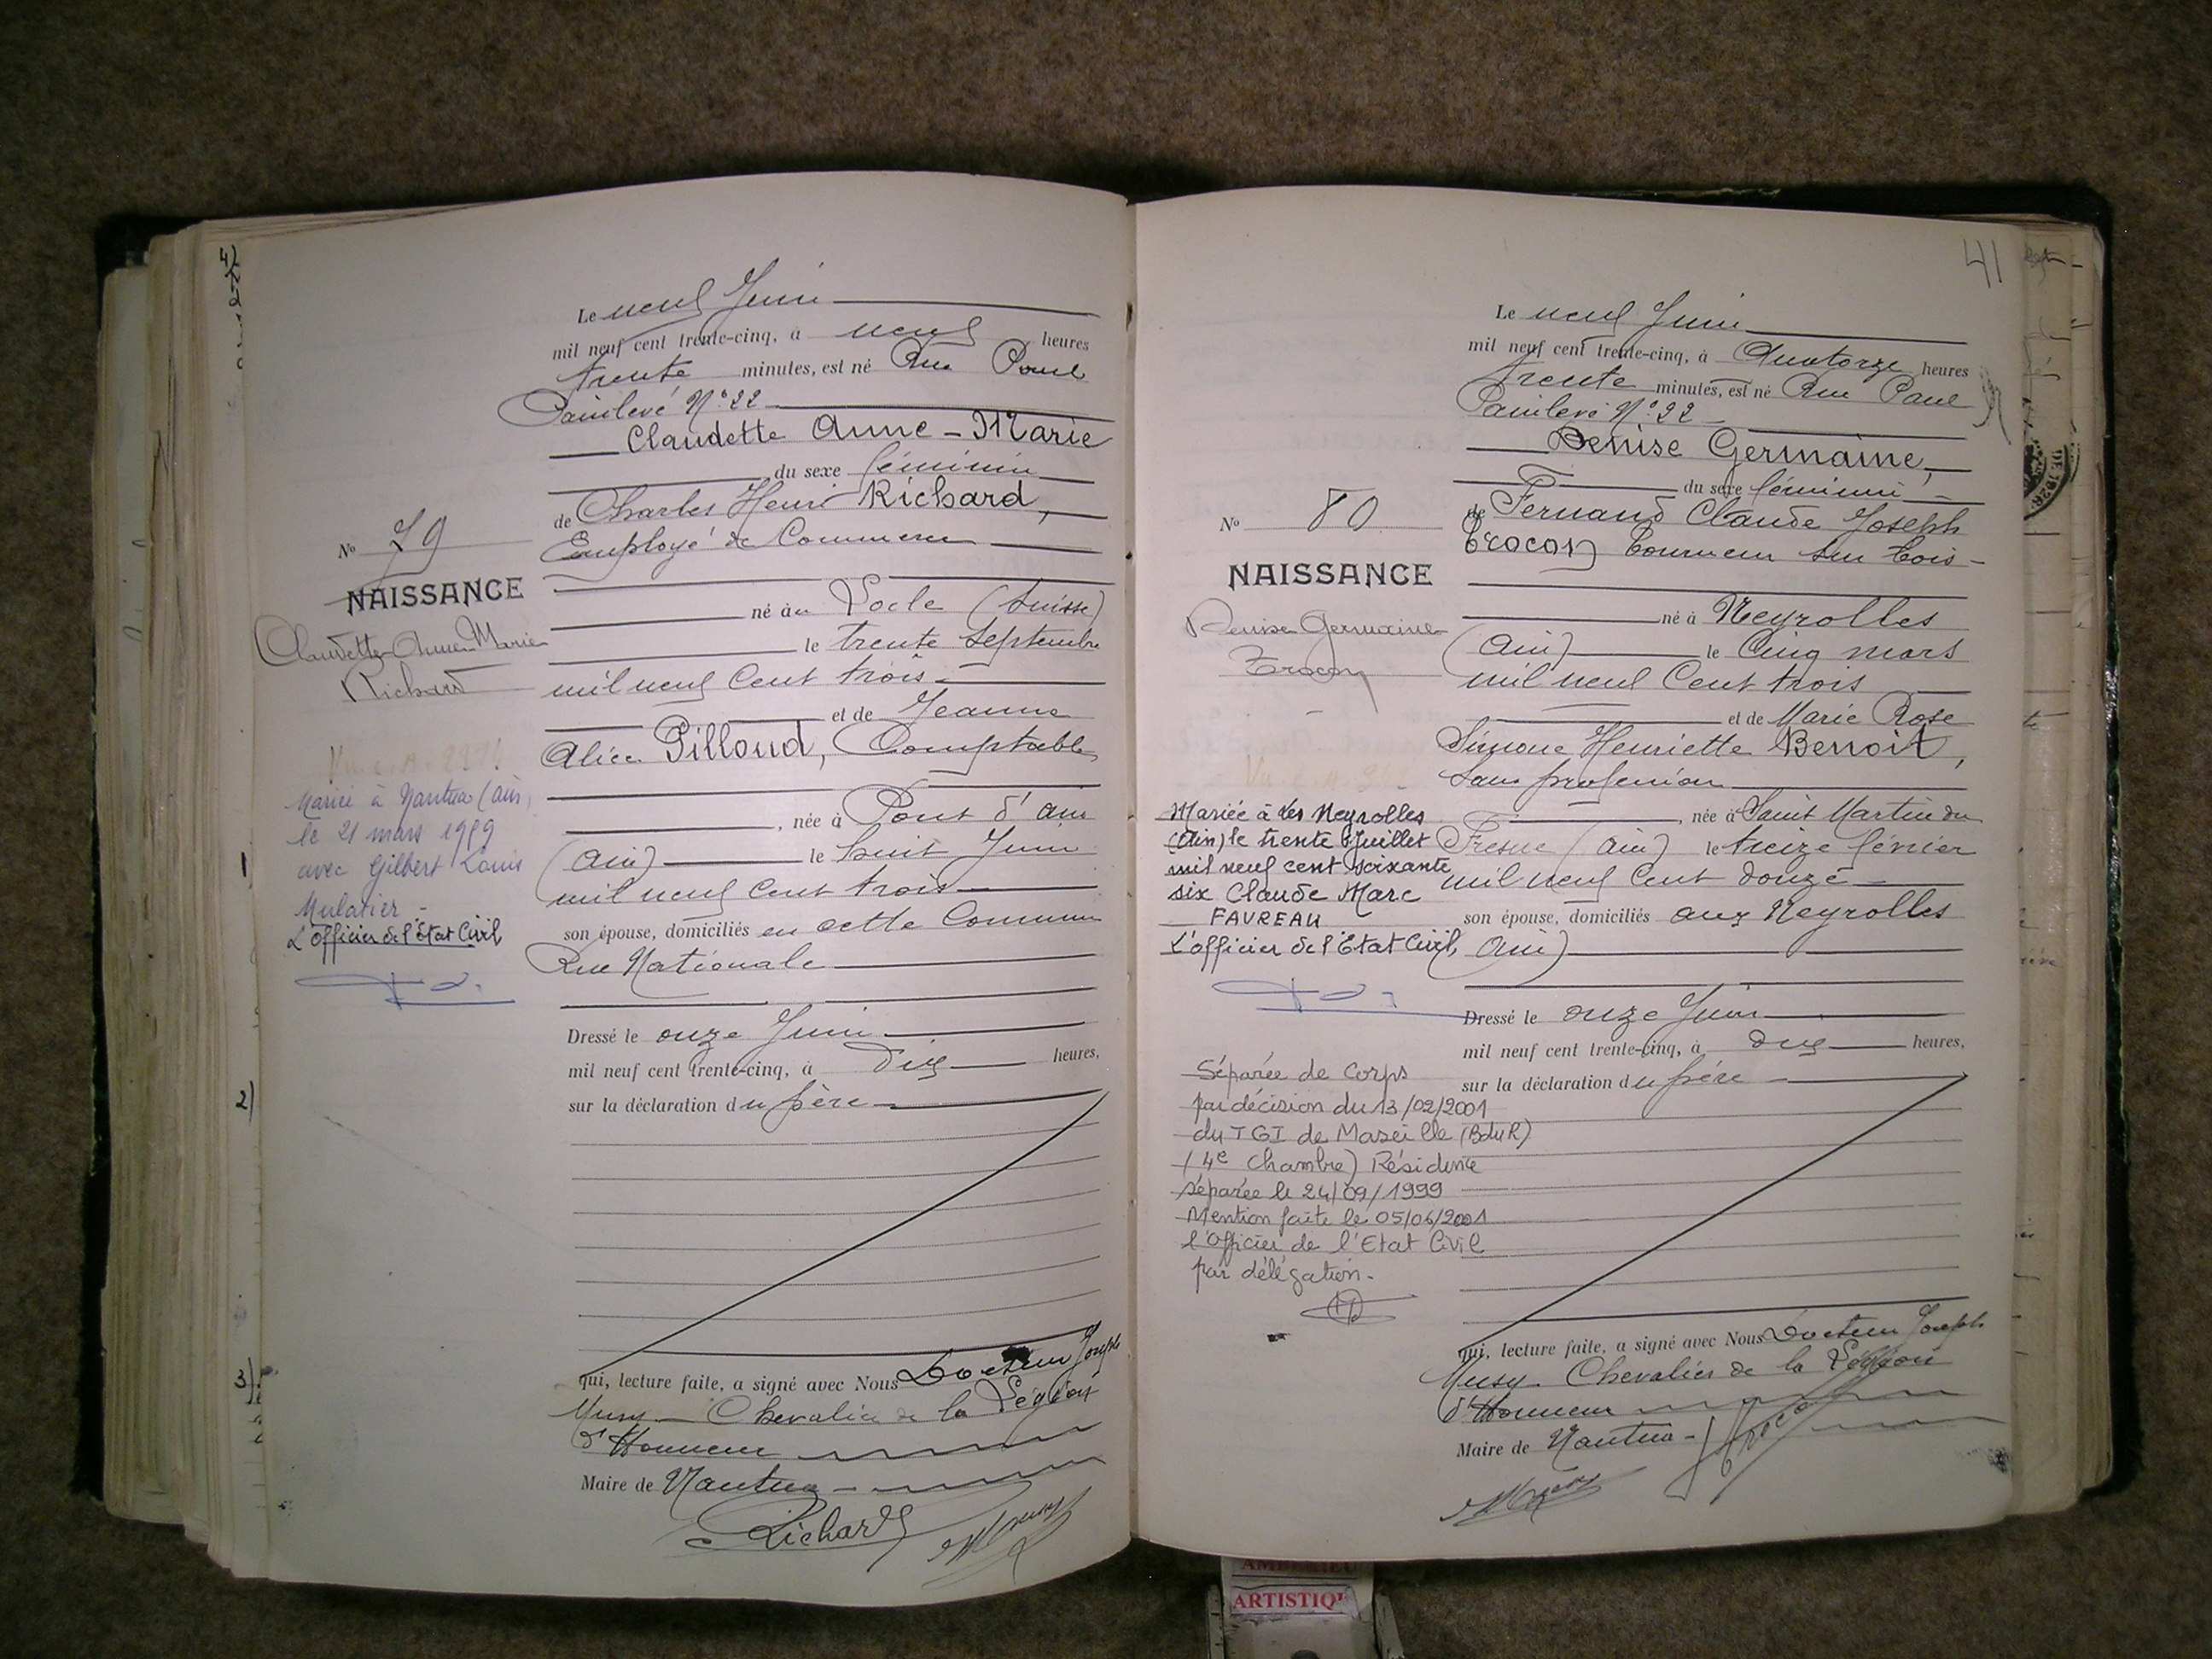 Le neuf Juin
mil neuf cent trente-cinq, à neuf heures
trente minutes, est né Rue Paul
Painlevé N° 22
Claudette Anne-Marie
du sexe féminin
de Charles Henri Richard,
Employé de Commerce
né au Locle (Suisse)
le trente Septembre
mil neuf Cent trois
et de Jeanne
Alice Pilloud, Comptable
, née à Pont d'Ain
(Ain) le huit Juin
mil neuf Cent trois
son épouse, domiciliés en cette Commune
Rue Nationale
Dressé le onze Juin
mil neuf cent trente-cinq, à Dix heures,
sur la déclaration du père
qui, lecture faite, a signé avec Nous Docteur Joseph
Musy - Chevalier de la Légion
d'Honneur
Maire de Nantua
Richard
4)
2)
3)
N° 79
NAISSANCE
Claudette Anne Marie
Richard
Mariée à Nantua (Ain)
le 21 mars 1959
avec Gilbert Louis
Mulatier -
L'Officier de l'Etat Civil
41
Le neuf Juin
mil neuf cent trente-cinq, à Quatorze heures
trente minutes, est né Rue Paul
Painlevé N° 22
Denise Germaine,
du sexe féminin
de Fernand Claude Joseph
Trocon Tourneur sur bois -
né à Neyrolles
(Ain) le Cinq mars
mil neuf Cent trois
et de Marie Rose
Simone Henriette Benoit,
Sans profession
, née à Saint Martin du
Fresne (Ain) le treize février
mil neuf Cent douze
son épouse, domiciliés aux Neyrolles
(Ain)
Dressé le onze Juin
mil neuf cent trente-cinq, à dix heures,
sur la déclaration du père
qui, lecture faite, a signé avec Nous Docteur Joseph
Musy - Chevalier de la Légion
d'Honneur
Maire de Nantua -
N° 80
NAISSANCE
Denise Germaine
Trocon
Mariée à Les Neyrolles
(Ain) le trente Juillet
mil neuf cent soixante
six Claude Marc
FAVREAU
L'officier de l'Etat Civil,
Séparée de corps
par décision du 13/02/2001
du TGI de Maseille (BduR)
(4e Chambre) Résidence
séparée le 24/09/1999
Mention faite le 05/06/2001
l'Officier de l'Etat Civil
par délégation.
ARTISTIQ